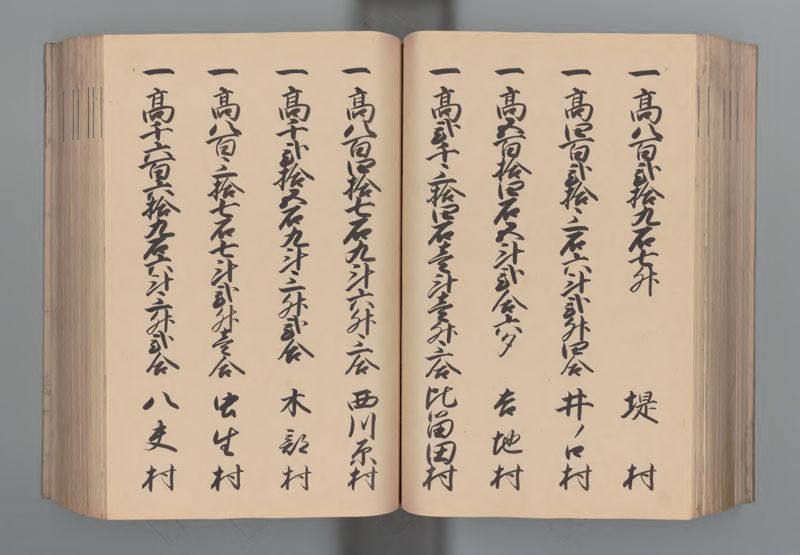 一高八百弐拾九石七升 堤村
一高四百弐拾三石六斗弐升四合 井ノ口村
一高五百拾四石五斗弐合六夕 吉地村
一高弐千三拾四石壱斗壱升三合 比留田村
一高八百四拾七石九斗六升三合 西川原村
一高千弐拾五石九斗三升弐合 木部村
一高八百三拾七石七斗弐升壱合 虫生村
一高千六百六拾九石六斗三升弐合 八夫村